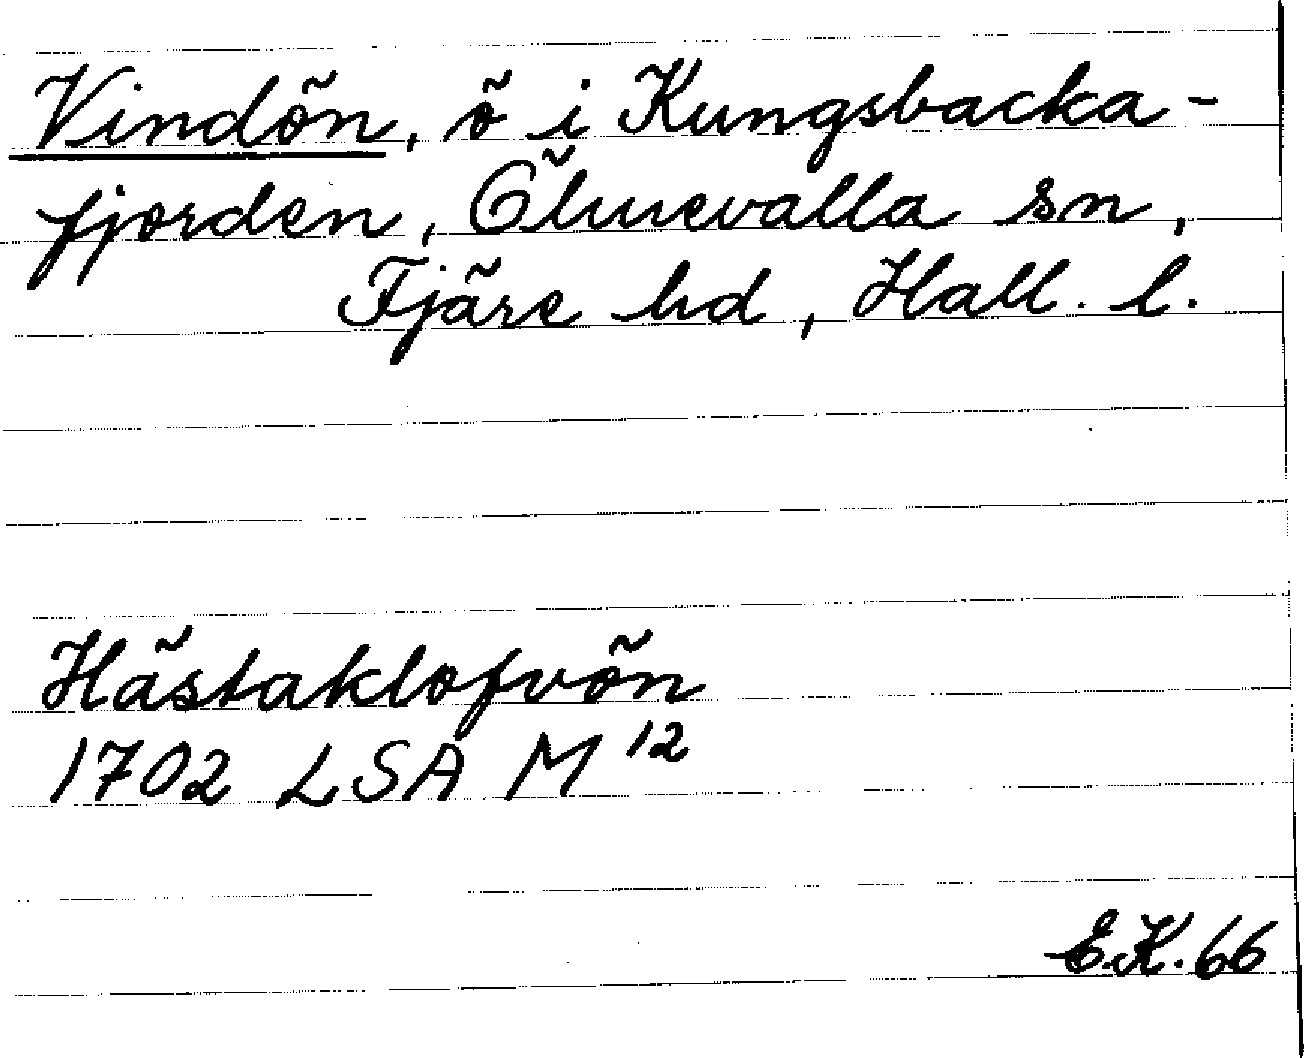 Vindön, ö i Kungsbacka-
fjorden, Ölmevalla sn,
Fjäre hd, Hall. l.
Hästaklofvön
1702 LSA M 12
E.K. 66